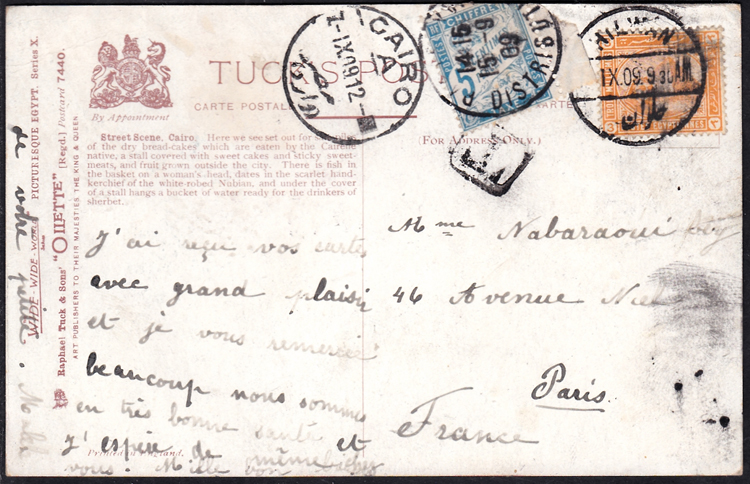 TUCK'S POST
CARTE POSTALE
By Appointment
(FOR ADDRESS ONLY.)
Street Scene, Cairo. Here we see set out for sale
of the dry bread-cakes which are eaten by the Cairene
native, a stall covered with sweet cakes and sticky sweet-
meats, and fruit grown outside the city. There is fish in
the basket on a woman's head, dates in the scarlet hand-
kerchief of the white-robed Nubian, and under the cover
of a stall hangs a bucket of water ready for the drinkers of
sherbet.
CAIRO
A
7-IX 09.12-
القاهرة
CHIFFRE
5
14 15
15 -9
09
DISTRIB
T
6.60.XI
حلوان
J'ai reçu vos cartes
avec grand plaisir
et je vous remercie
beaucoup nous sommes
en très bonne santé et
J'espère de même
vous.
de votre petite.
Mme Nabaraoui
46 Avenue Niel
Paris
France
Printed in England.
WIDE-WIDE-WORLD PICTURESQUE EGYPT. Series X.
Raphael Tuck & Sons' "OILETTE" [Regd.] Postcard 7440.
ART PUBLISHERS TO THEIR MAJESTIES THE KING & QUEEN